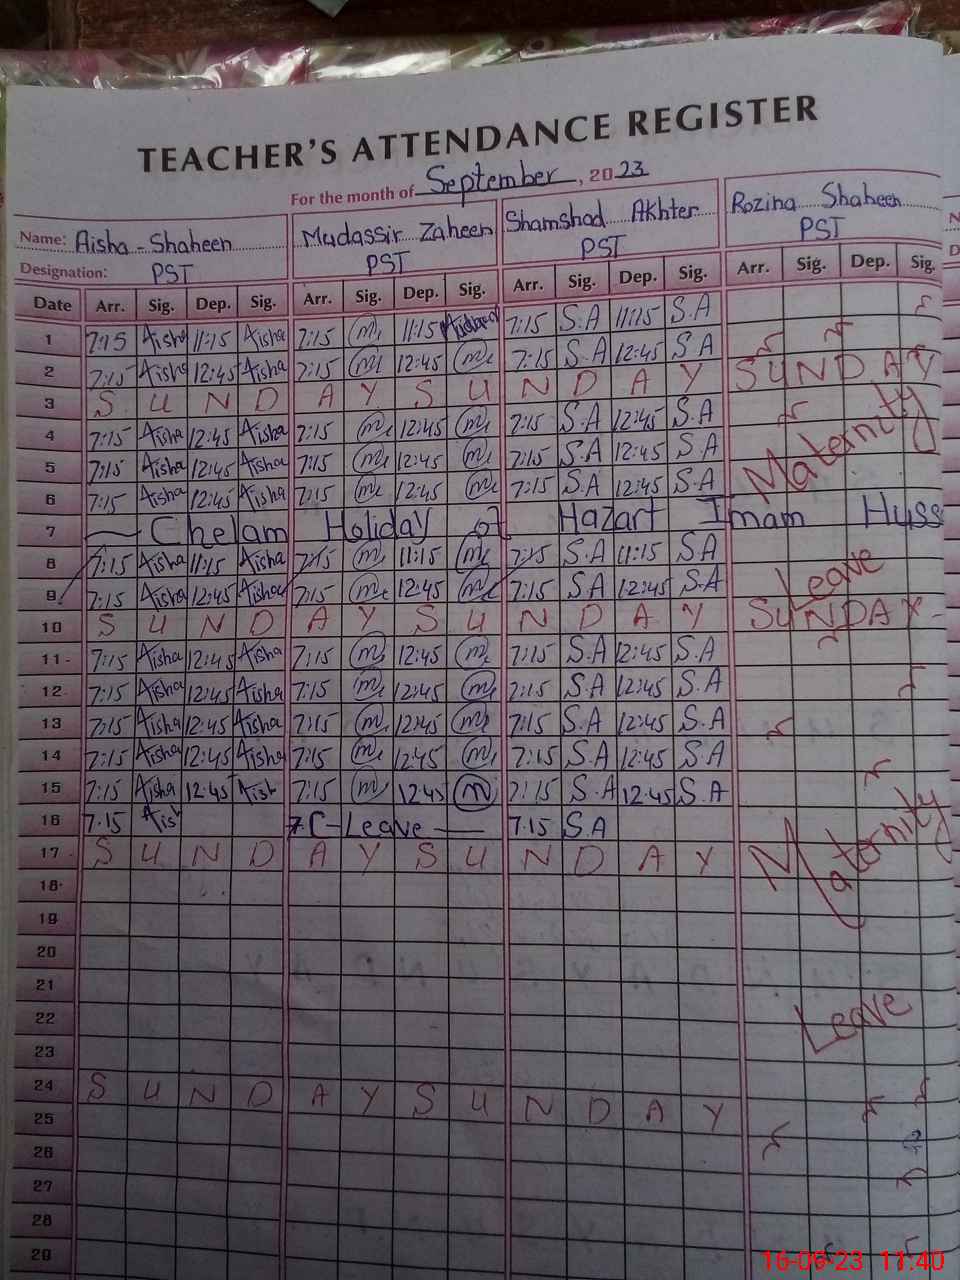 TEACHER'S ATTENDANCE REGISTER
For the month of September, 2023
Name: Aisha - Shaheen Mudassir Zaheen Shamshad Akhter Rozina Shaheen
Designation: PST PST PST PST
Date Arr. Sig. Dep. Sig. Arr. Sig. Dep. Sig. Arr. Sig. Dep. Sig. Arr. Sig. Dep. Sig.
1 7:15 Aisha 11:15 Aisha 7:15 m 11:15 7:15 S.A 11:15 S.A
2 7:15 Aisha 12:45 Aisha 7:15 m 12:45 m 7:15 S.A 12:45 S.A
3 S U N D A Y S U N D A Y S U N D A Y
4 7:15 Aisha 12:45 Aisha 7:15 m 12:45 m 7:15 S.A 12:45 S.A
5 7:15 Aisha 12:45 Aisha 7:15 m 12:45 m 7:15 S.A 12:45 S.A Maternity
6 7:15 Aisha 12:45 Aisha 7:15 m 12:45 m 7:15 S.A 12:45 S.A
7 Chelam Holiday of Hazart Imam Huss
8 7:15 Aisha 11:15 Aisha 7:15 m 11:15 m 7:15 S.A 11:15 S.A
9 7:15 Aisha 12:45 Aisha 7:15 m 12:45 m 7:15 S.A 12:45 S.A Leave
10 S U N D A Y S U N D A Y SUNDAY
11 7:15 Aisha 12:45 Aisha 7:15 m 12:45 m 7:15 S.A 12:45 S.A
12 7:15 Aisha 12:45 Aisha 7:15 m 12:45 m 7:15 S.A 12:45 S.A
13 7:15 Aisha 12:45 Aisha 7:15 m 12:45 m 7:15 S.A 12:45 S.A
14 7:15 Aisha 12:45 Aisha 7:15 m 12:45 m 7:15 S.A 12:45 S.A
15 7:15 Aisha 12:45 Aish 7:15 m 12:45 m 7:15 S.A 12:45 S.A
16 7.15 Aish C-Leave 7.15 S.A
17 S U N D A Y S U N D A Y Maternity
18
19
20
21
22 Leave
23
24 S U N D A Y S U N D A Y
25
26
27
28
29
16-09-23 11:40